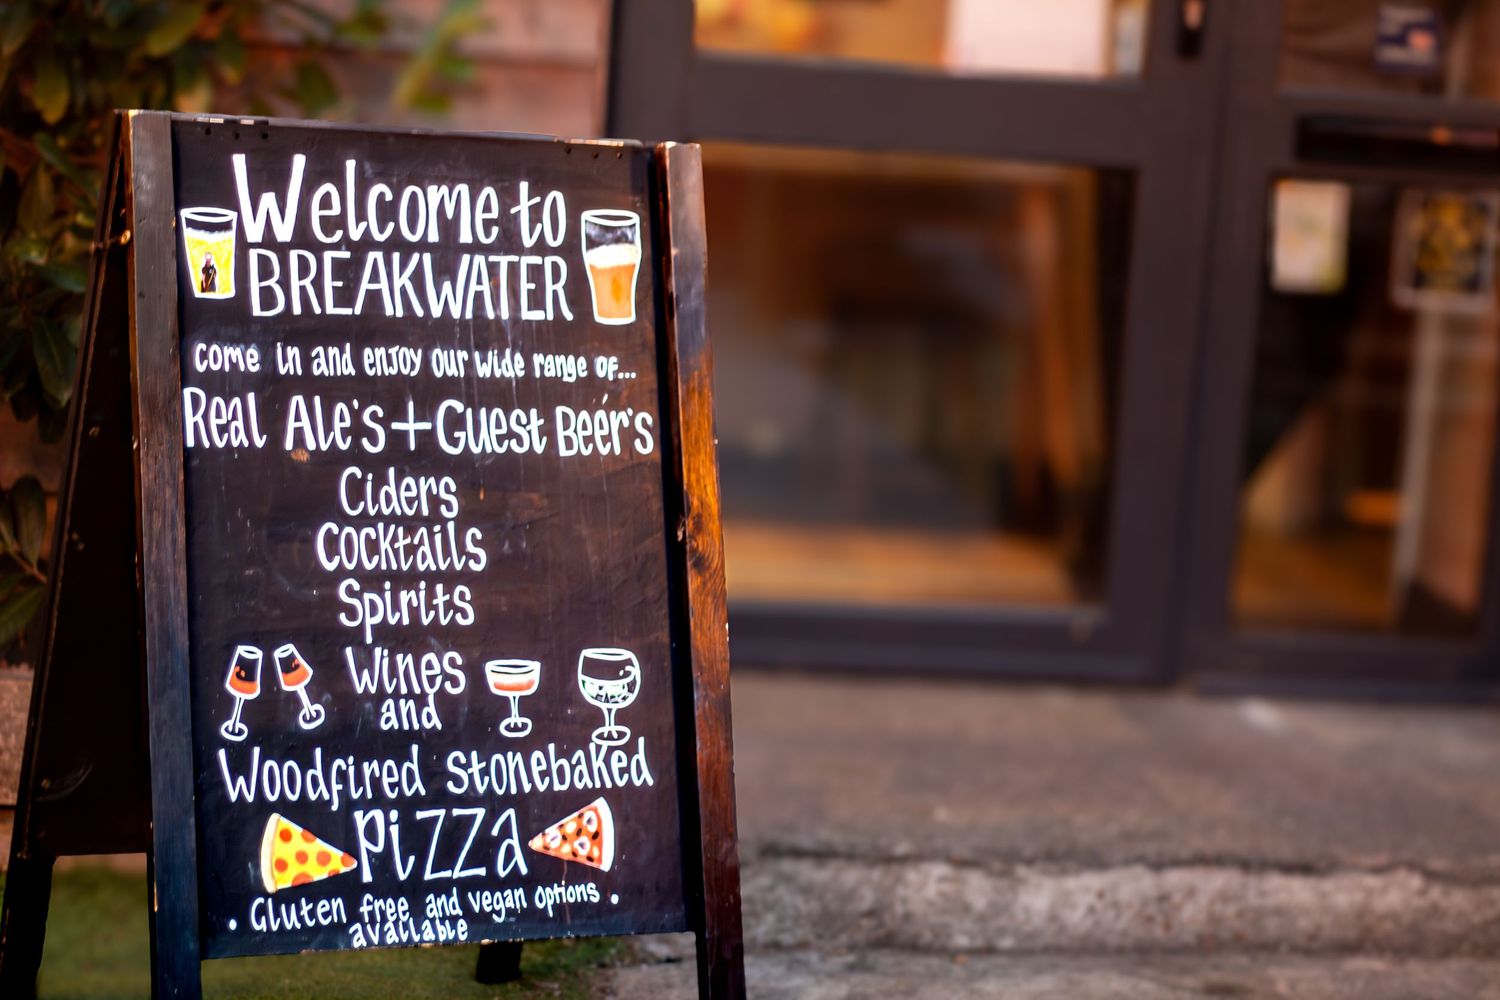 Welcome to
BREAKWATER
come in and enjoy our wide range of...
Real Ale's + Guest Beer's
Ciders
Cocktails
Spirits
Wines
and
Woodfired stonebaked
Pizza
. Gluten free and vegan options .
available